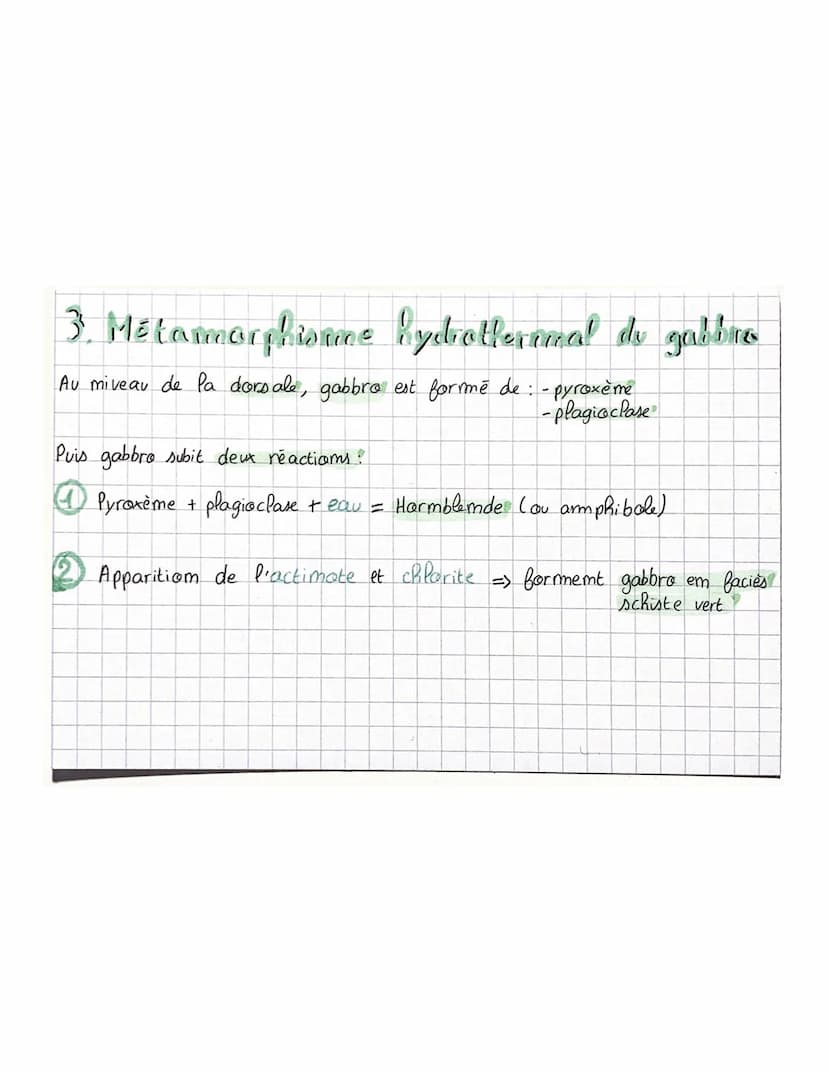 3. Métamorphisme hydrothermal du gabbro
Au niveau de la dorsale, gabbro est formé de : - pyroxène
- plagioclase
Puis gabbro subit deux réactions :
1 Pyroxène + plagioclase + eau = Hornblende (ou amphibole)
2 Apparition de l'actinote et chlorite => forment gabbro en faciès
schiste vert